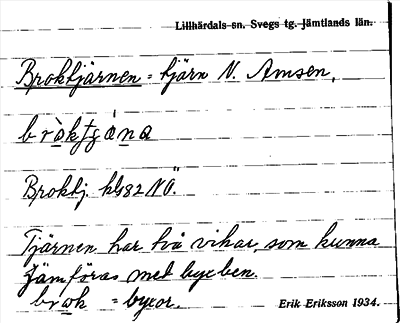 Lillhärdals sn. Svegs tg. Jämtlands län.
Broktjärnen = tjärn N. Amsen,
Broktj. 82 NÖ.
Tjärnen har två vikar, som kunna
jämföras med bycben.
brok = bycor.
Erik Eriksson 1934.